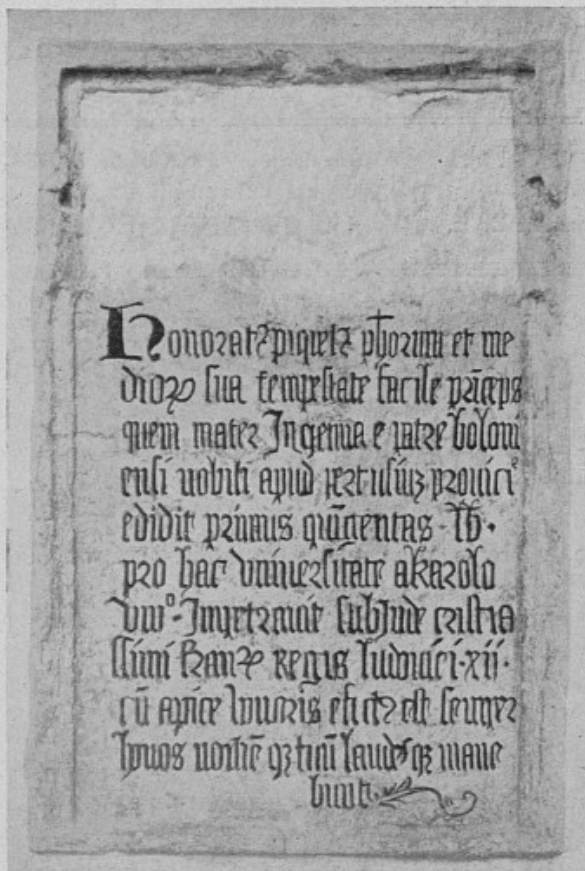 Honorat9 piquet9 ph̄orum et me
dicorꝝ sua tempestate facile prīceps
quem mater Ingenua e patre boloni
ensi nobili apud prouīci
edidit primus quīgentas lb·
pro hac vniuersitate akarolo
viiiº· Impetrauit subInde cristia
ssimi franꝝ Regis ludouici·xii·
cū apice est semper
honos nomē qꝫ tuū laudesqꝫ mane
bunt·